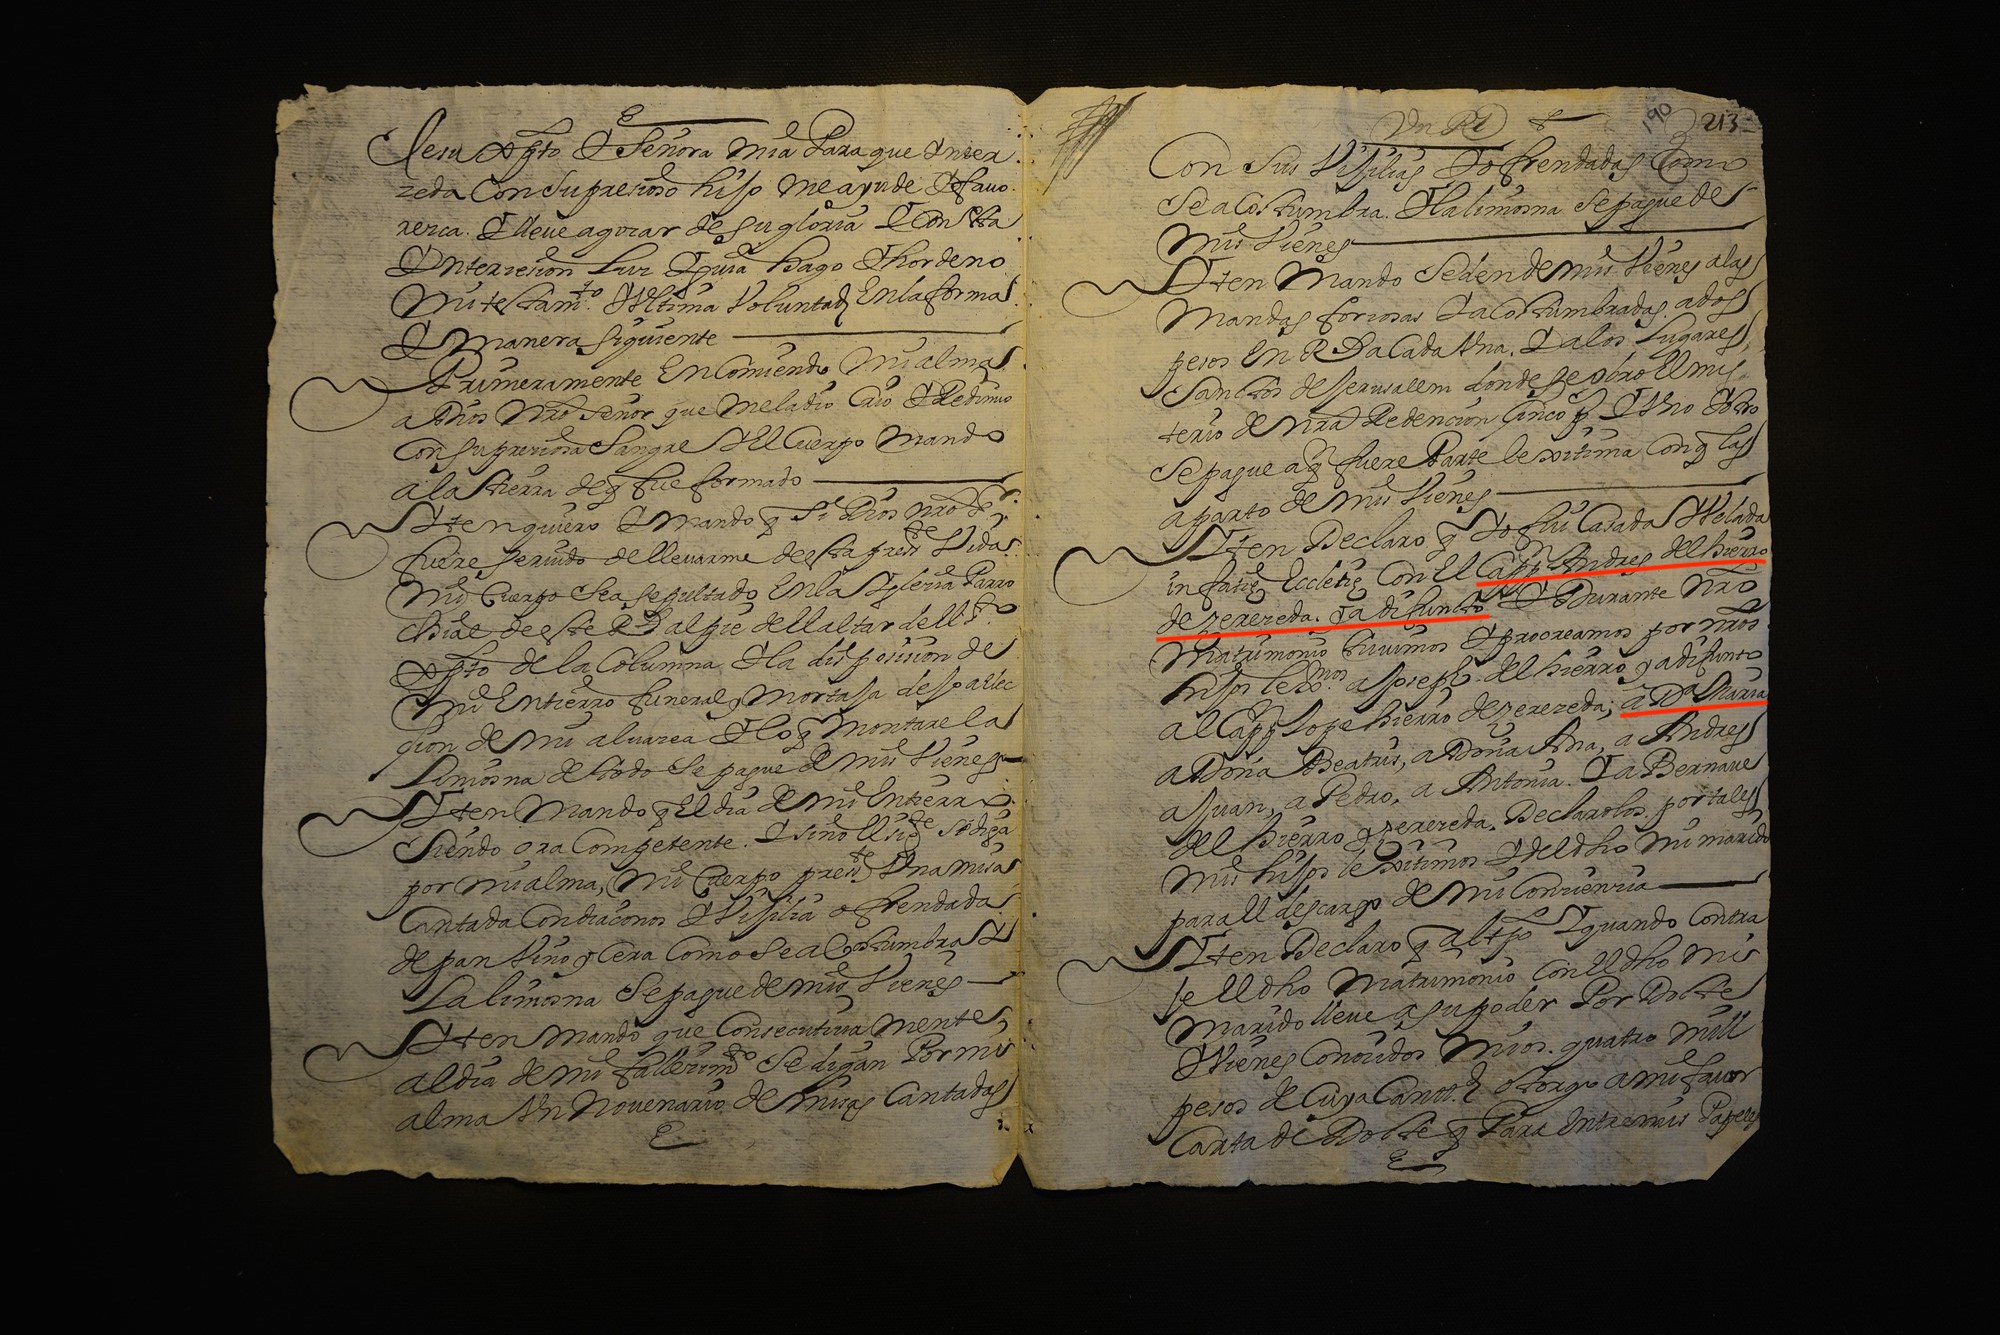 Jesu Xpto Y Señora mia Para que Inter
zeda Con Su presioso hijo Me ayude Y favo
rerca. Y lleve a gozar de su gloria Y Con Sta
Yntersesion Luz Y guia hago Y hordeno
Mi testam.to Y Ultima Voluntad En la forma
Y Manera siguiente
Primeramente Encomiendo Mi alma
a Dios Nro Señor que Me la dio Crio Y Redimio
Con su preciosa Sangre Y El Cuerpo Mando
a la tierra de q fue formado
Yten quiero Y Mando q Si Dios Nro Sr
fuere servido de llevarme de esta preste Vida
Mi Cuerpo Sea Sepultado En la Yglesia Parro
chial de este Rl al pie dell altar dell Sto
Xpto de la Columna Y la disposision de
Mi Entierro funeral y Mortaja dejo a Elec
sion de Mi alvacea Y lo q Montare la
Limosna de todo Se pague de Mis Vienes
Yten Mando q El dia de Mi Entierro
Siendo ora Competente. Y sino El sigte Se diga
por Mi alma, Mi Cuerpo preste Vna misa
Cantada Con diaconos Y Vijilia ofrendada
de pan Vino y Cera Como Se acostumbra Y
La limosna Se pague de mis Vienes
Yten Mando que Consecutiva Mente
al dia de Mi fallesimto Se digan Por mi
alma Vn Novenario de Misas Cantadas
Vn Rl
190
213
Con Sus Vijilias Y ofrendadas Como
Se acostumbra. Y la limosna Se pague de
Mis Vienes
Yten Mando Se den de Mis Vienes a las
Mandas forsosas Y acostumbradas. a dos
pesos En Rs a Cada Vna. Y a los Lugares
Santos de Jerusalem donde Se obro El mis
terio de Nra Redencion Cinco ps Y Vno Y otro
Se pague a q fuere Parte lexitima Con q las
aparto de Mis Vienes
Yten Declaro q Yo fui Casada Y Velada
in facie Eclecie Con El Cappn Andres del hierro
de zerezeda. ya difuncto Y Durante Nro
Matrimonio tuvimos Y procreamos por Nros
hijos lexmos a Joseph del hierro ya difunto
al Cappn Lope hierro de zerezeda; a Da Maria
a Doña Beatris, a Doña Ana, a Andres
a Juan, a Pedro, a Antonia. Y a Bernave
del hierro y zerezeda. Declarolos por tales
Mis hijos lexitimos Y del dho mi marido
para El descargo de Mi Conciencia
Yten Declaro q al tpo Y quando Contra
je El dho Matrimonio Con El dho Mi
Marido lleve a su poder Por Dotte
Y Vienes Conosidos Mios. quatro Mill
pesos de Cuya Cantd. otorgo a mi favor
Carta de Dotte q Para Entre mis Papeles